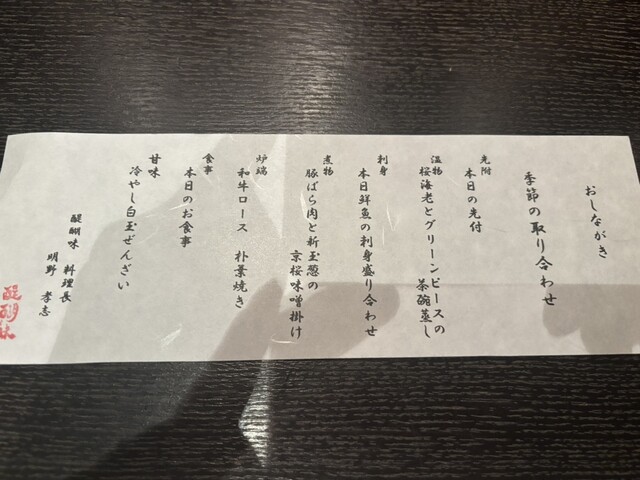 おしながき
季節の取り合わせ
先附
本日の先付
温物
桜海老とグリーンピースの
茶碗蒸し
刺身
本日鮮魚の刺身盛り合わせ
煮物
豚ばら肉と新玉葱の
京桜味噌掛け
炉端
和牛ロース 朴葉焼き
食事
本日のお食事
甘味
冷やし白玉ぜんざい
醍醐味 料理長
明野 孝志
醍醐味